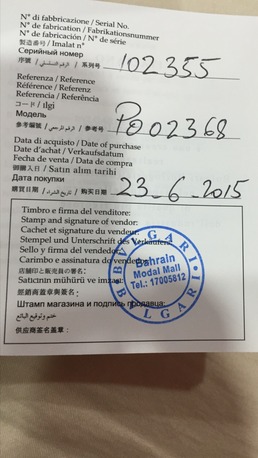 N° di fabbricazione / Serial No.
N° de fabrication / Fabrikationsnummer
N° de fabricación / N° de série
製造番号 / Imalat n°
Серийный номер
序號 / الرقم التسلسلي / 系列号 102355
Referenza / Reference
Référence / Referenz
Referencia / Referência
コード / ilgi
Модель
參考編號 / الرقم المرجعي / 参考号 P002368
Data di acquisto / Date of purchase
Date d'achat / Verkaufsdatum
Fecha de venta / Data de compra
御購入日 / Satın alım tarihi
Дата покупки
購買日期 / تاريخ الشراء / 购买日期 23-6-2015
Timbro e firma del venditore:
Stamp and signature of vendor:
Cachet et signature du vendeur:
Stempel und Unterschrift des Verkäufers:
Sello y firma del vendedor:
Carimbo e assinatura do vendedor:
店舗印と販売員の署名:
Satıcının mühürü ve imzası:
經銷商蓋章與簽名:
Штамп магазина и подпись продавца:
ختم وتوقيع البائع
供应商签名盖章:
BVLGARI • BVLGARI
Bahrain
Modal Mall
Tel.: 17005812